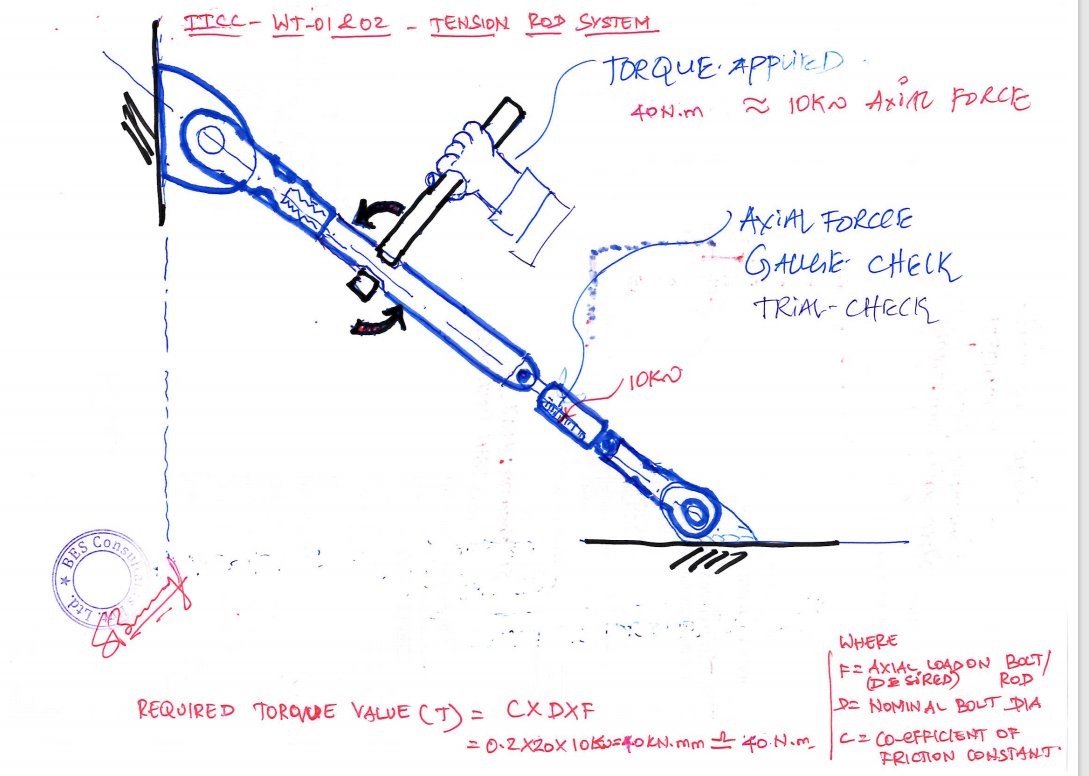 TTCC - WT-01&02 - TENSION ROD SYSTEM
TORQUE APPLIED
40N.m ≈ 10KN AXIAL FORCE
AXIAL FORCE
GAUGE CHECK
TRIAL-CHECK
10KN
BES Consul
Ltd.
WHERE
F= AXIAL LOAD ON BOLT/
(DESIRED) ROD
D= NOMINAL BOLT DIA
C= CO-EFFICIENT OF
FRICTION CONSTANT.
REQUIRED TORQUE VALUE (T) = CXDXF
= 0.2X20X10KN=40KN.mm ≏ 40.N.m